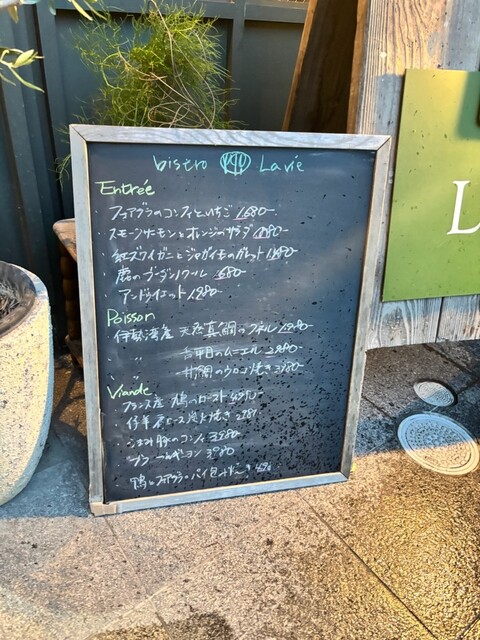 bistro La vie
Entrée
フォアグラのコンフィといちご 1,680-
スモークサーモンとオレンジのサラダ 1,480-
紅ズワイガニとジャガイモのガレット 1,480-
鹿のブーダンノワール 680-
アンドゥイエット 1,980-
Poisson
伊勢湾産 天然真鯛のポワレ 1,980-
〃 〃 のムニエル 2,980-
〃 甘鯛のウロコ焼き 3,980-
Viande
フランス産 鳩のロースト
仔羊 炭火焼き
豚のコンフィ 3,980-
3,980
鴨とフォアグラのパイ包み焼き
L